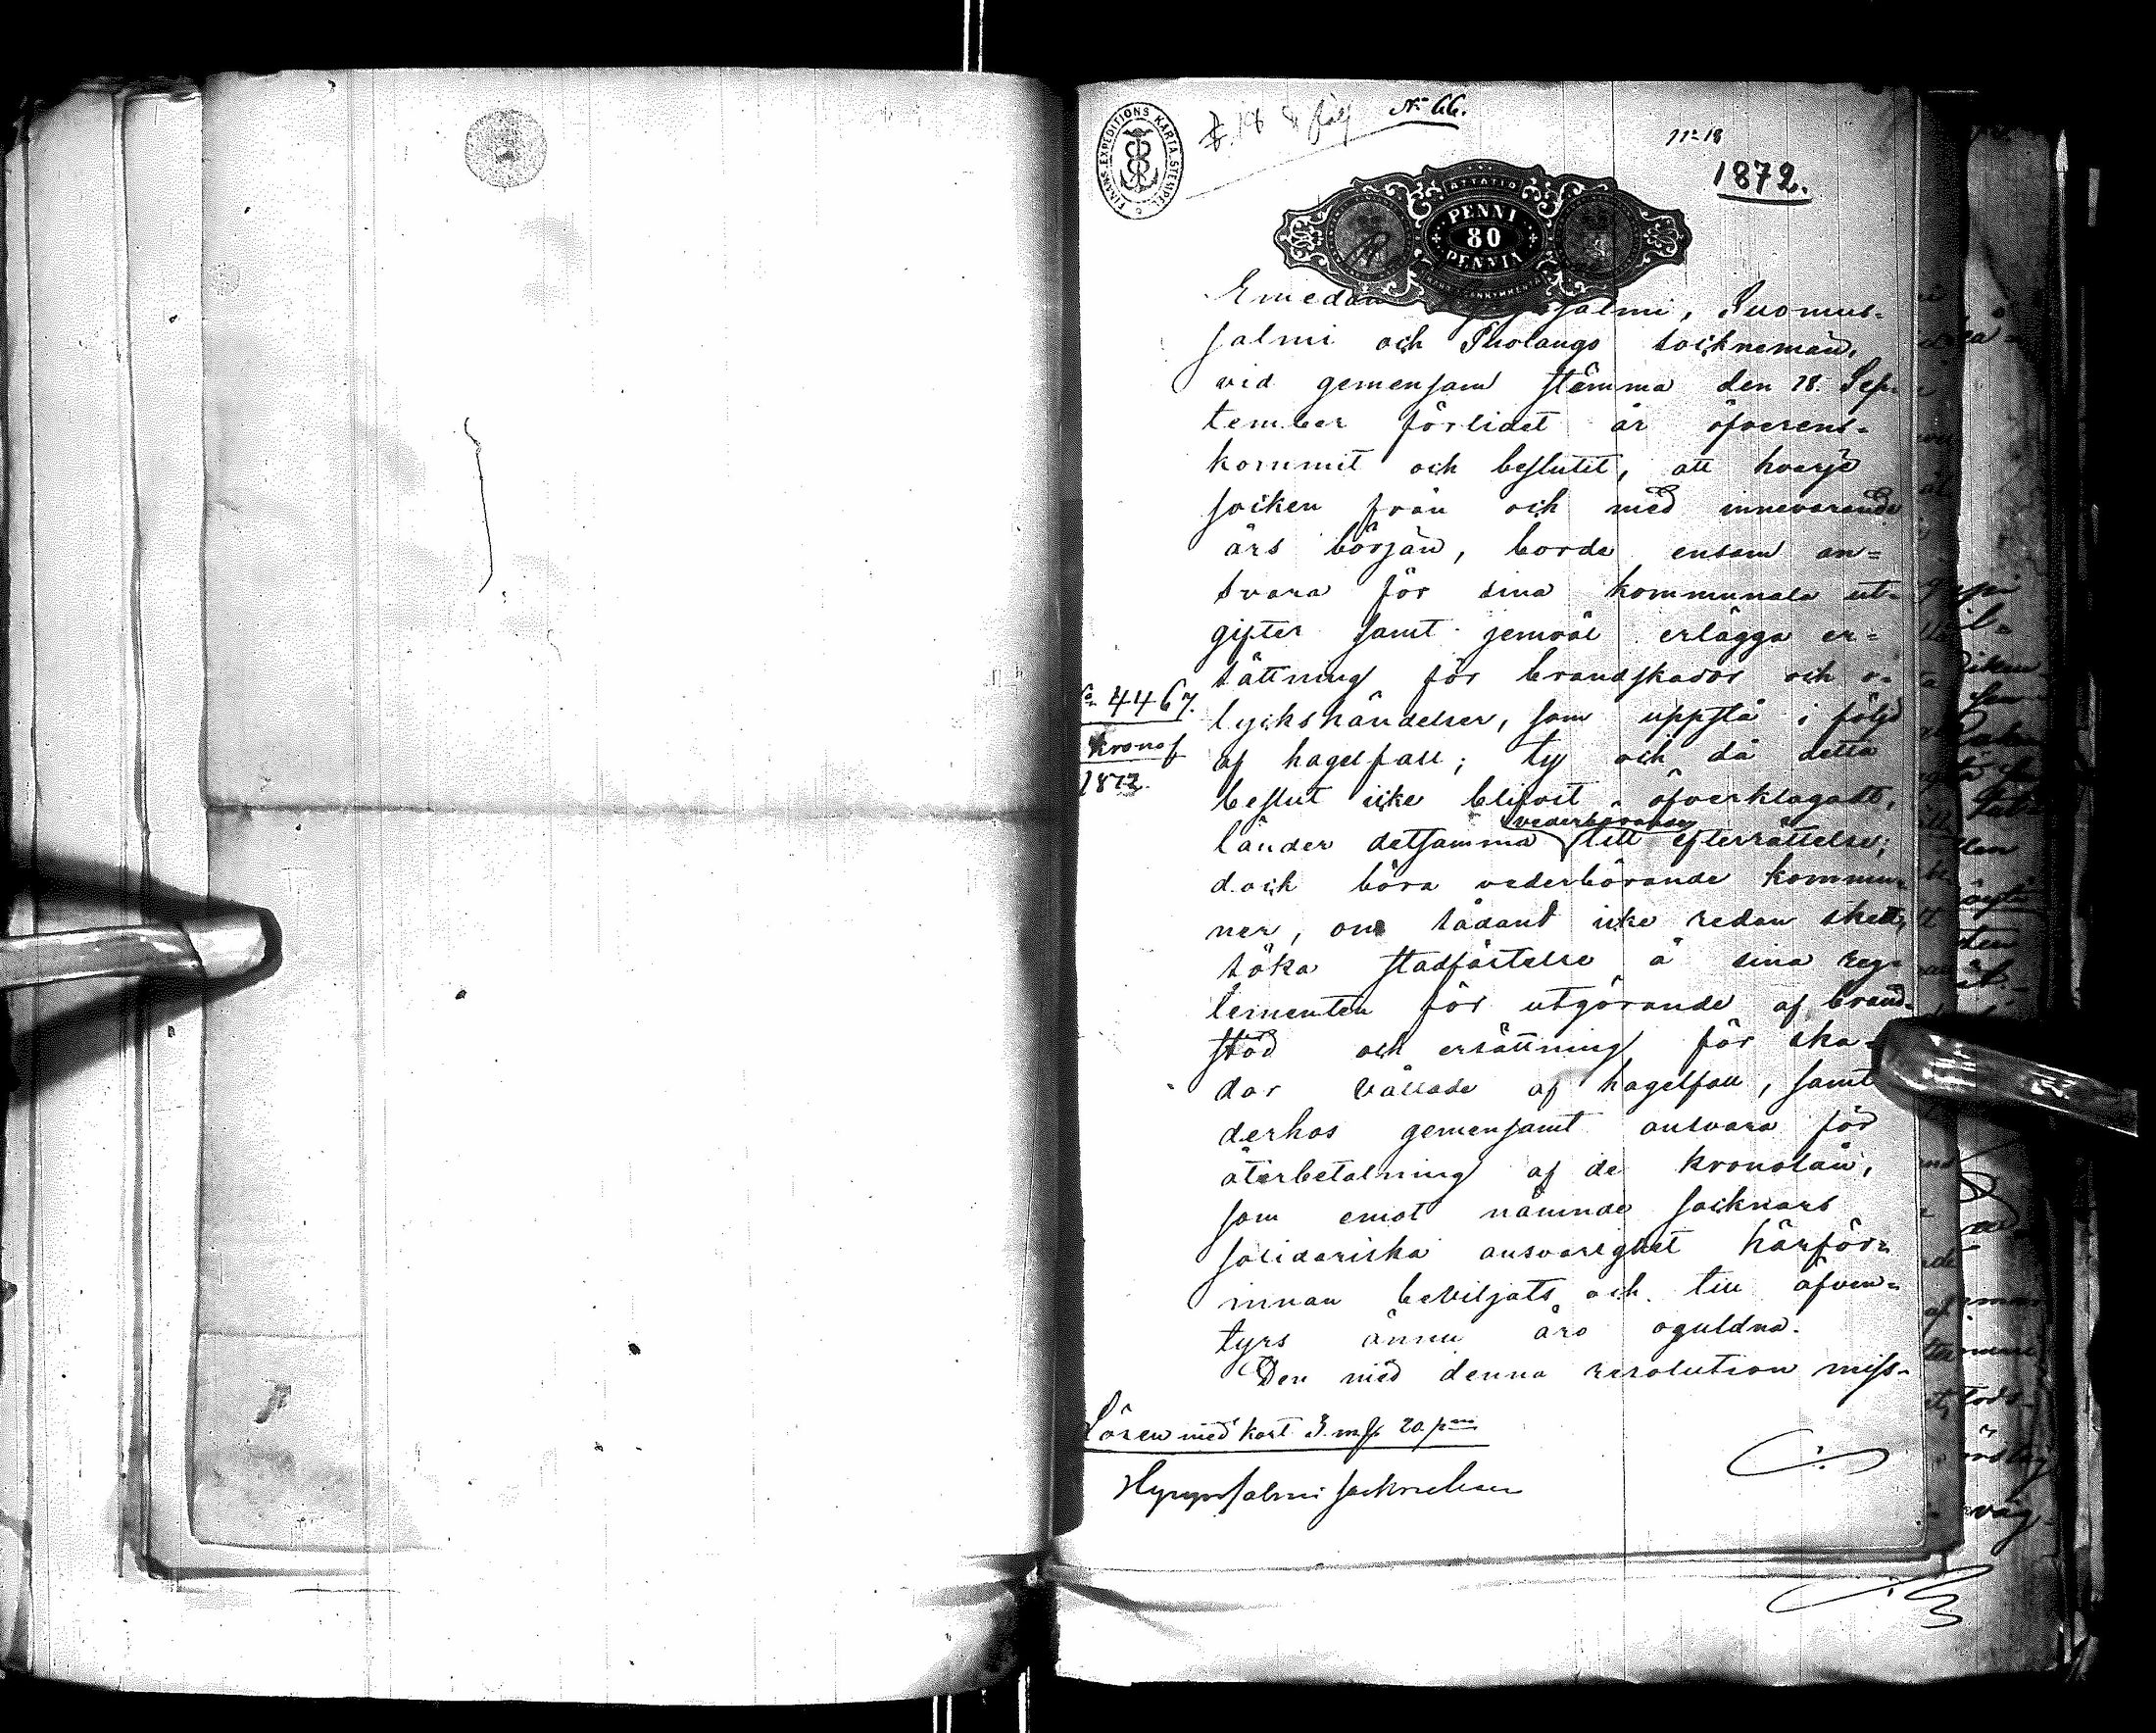 № 66.
n:o 18
1872.
FINANS-EXPEDITIONS KARTA STEMPEL
PENNI
80
PENNIÄ
Emedan salmi, Suomus-
salmi och Pholango socknemän,
vid gemensam stämma den 18. Sep-
tember förlidet år öfverens-
kommit och beslutit, att hvarje
socken från och med innevarande
års början, borde ensam an-
svara för sina kommunala ut-
gifter samt jemväl erlägga er-
sättning för brandskador och o-
lyckshändelser, som uppstå i följd
af hagelfall; ty och då detta
beslut icke blifvit öfverklagadt,
länder detsamma vederbörande till efterrättelse;
dock böra vederbörande kommu-
ner, om sådant icke redan skett,
söka stadfästelse å sina reg-
lementen för utgörande af brand-
stöd och ersättning för ska-
dor vållade af hagelfall, samt
derhos gemensamt ansvara för
återbetalning af de kronolån,
som emot nämnde socknars
solidariska ansvarighet härför-
innan beviljats och till äfven-
tyrs ännu äro oguldna.
Den med denna resolution miss-
№ 4467.
1872.
Lösen med kart 3 mk 20 pni
Hyrynsalmi